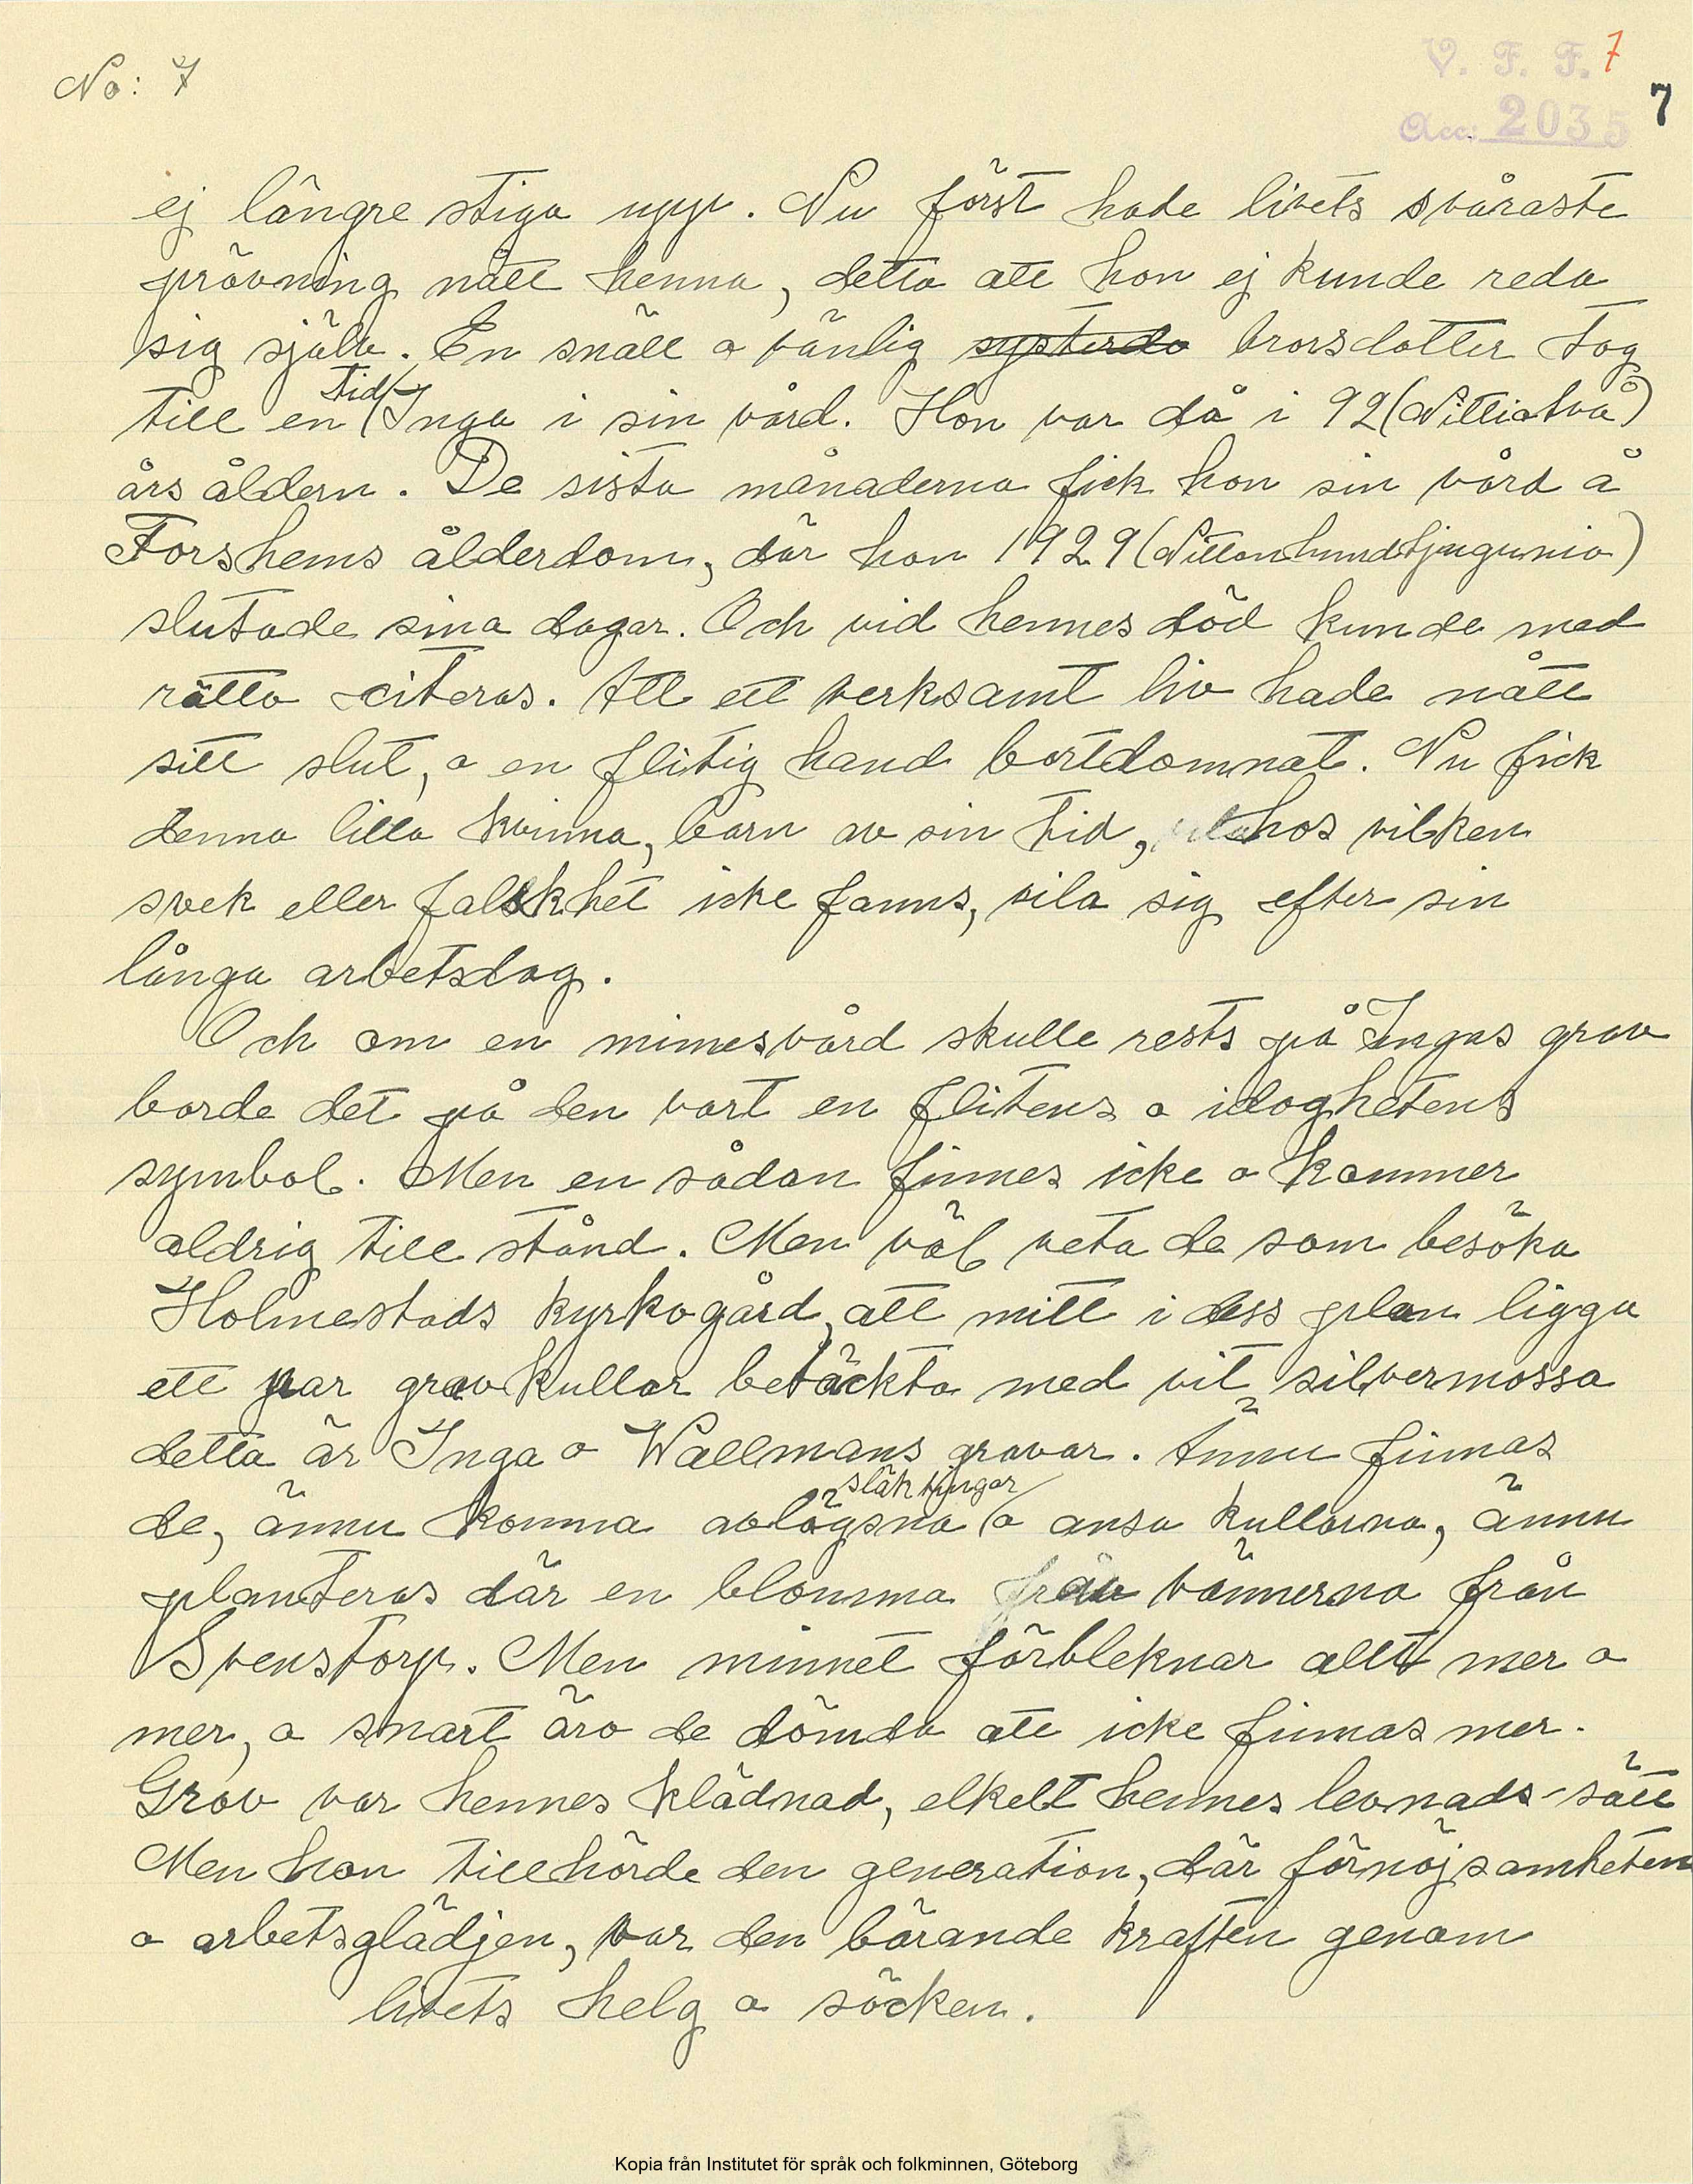 No: 7
V. F. F. 7
Acc. 2035
7
ej längre stiga upp. Nu först hade livets svåraste
prövning nått henna, detta att hon ej kunde reda
sig själv. En snäll o vänlig systerdo brorsdotter tog
till en tid Inga i sin vård. Hon var då i 92 (Nittiotvå)
års åldern. De sista månaderna fick hon sin vård å
Forshems ålderdom, där hon 1929 (Nittonhundtjugunio)
slutade sina dagar. Och vid hennes död kunde med
rätta citeras. Att ett verksamt liv hade nått
sitt slut, o en flitig hand bortdomnat. Nu fick
denna lilla kvinna, barn av sin tid, hos vilken
svek eller falskhet icke fanns, vila sig efter sin
långa arbetsdag.
Och om en minnesvård skulle rests på Ingas grav
borde det på den vart en flitens o idoghetens
symbol. Men en sådan finnes icke o kommer
aldrig till stånd. Men väl veta de som besöka
Holmestads kyrkogård, att mitt i dess plan ligga
ett par gravkullar betäckta med vit silvermossa
detta är Inga o Wallmans gravar. Ännu finnas
de, ännu komma avlägsna släktingar o ansa kullarna, ännu
planteras där en blomma från vännerna från
Svenstorp. Men minnet förbleknar allt mer o
mer, o snart äro de dömda att icke finnas mer.
Grov var hennes klädnad, elkelt hennes levnads-sätt
Men hon tillhörde den generation, där förnöjsamheten
o arbetsglädjen, var den bärande kraften genom
livets helg o söcken.
Kopia från Institutet för språk och folkminnen, Göteborg